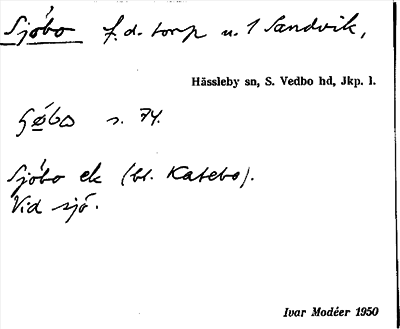 Sjöbo f.d. torp u. 1 Sandvik,
Hässleby sn, S. Vedbo hd, Jkp. l.
s. 74.
Sjöbo ek (bl. Katebo).
Vid sjö.
Ivar Modéer 1950